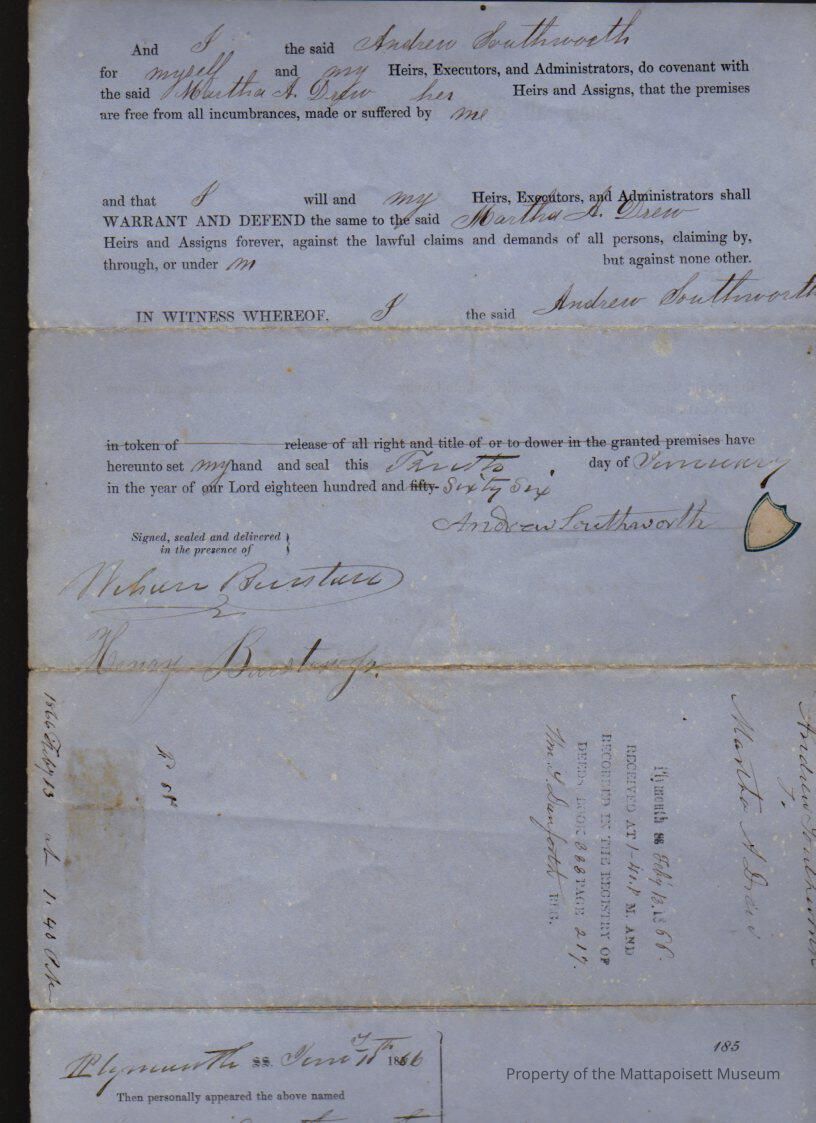 And I the said Andrew Southworth
for myself and my Heirs, Executors, and Administrators, do covenant with
the said Martha A. Drew her Heirs and Assigns, that the premises
are free from all incumbrances, made or suffered by me
and that I will and my Heirs, Executors, and Administrators shall
WARRANT AND DEFEND the same to the said Martha A. Drew
Heirs and Assigns forever, against the lawful claims and demands of all persons, claiming by,
through, or under m but against none other.
IN WITNESS WHEREOF, I the said Andrew Southworth
in token of release of all right and title of or to dower in the granted premises have
hereunto set my hand and seal this day of January
in the year of our Lord eighteen hundred and fifty- Sixty Six
Andrew Southworth
Signed, sealed and delivered
in the presence of
Wilson Barstow
Henry Barstow Jr.
Andrew Southworth
Martha A Drew
Plymouth ss Feby 13. 1866.
RECEIVED AT 1-40 P M. AND
RECORDED IN THE REGISTRY OF
DEEDS BOOK 333 PAGE 217.
Wm. S. Danforth REG.
1866 Feby 13 at 1. 40 P.M
Plymouth SS. 1866
Then personally appeared the above named
185
Property of the Mattapoisett Museum